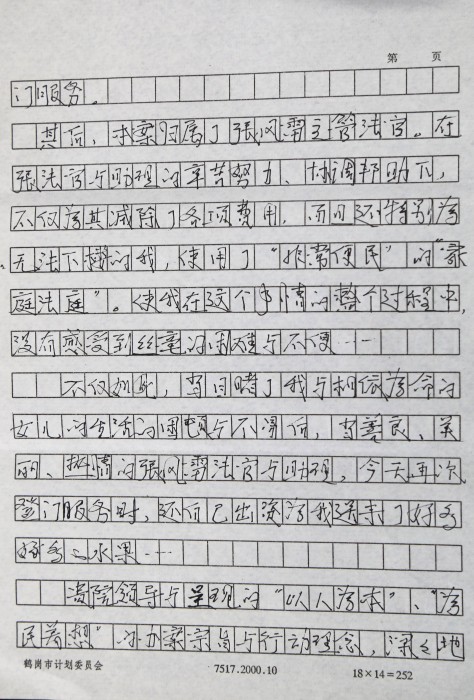 第 页
门服务。
其后，本案归属了张凤霞主管法官。在
张法官与助理的辛苦努力、协调帮助下，
不仅为其减除了各项费用，而且还特别为
无法下楼的我，使用了“非常便民”的“家
庭法庭”。使我在这个事情的整个过程中，
没有感受到丝毫的困难与不便……
不仅如此，当目睹了我与相依为命的
女儿的生活的困顿与不得后，当善良、美
丽、热情的张凤霞法官与助理，今天再次
登门服务时，还自己出资为我送来了好多
好多的水果……
贵院领导与呈现的“以人为本”、“为
民着想”的办案宗旨与行动理念，深深地
鹤岗市计划委员会 7517.2000.10 18×14=252